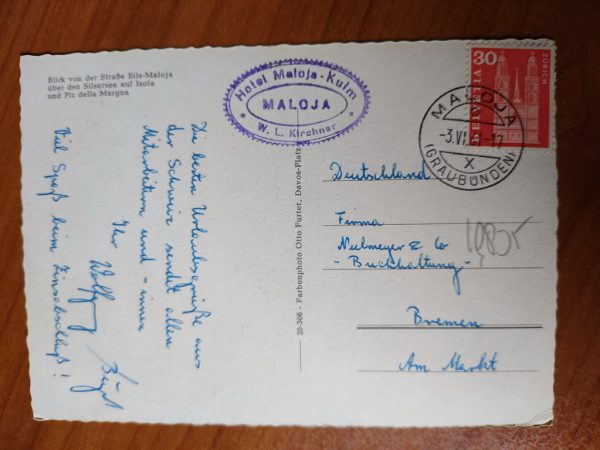 Blick von der Straße Sils-Maloja
über den Silsersee auf Isola
und Piz della Margna
Hotel Maloja-Kulm
MALOJA
W. L. Kirchner
30
HELVETIA
ZÜRICH
MALOJA
-3.VI.
-17
X
(GRAUBÜNDEN)
Die besten Urlaubsgrüße aus
der Schweiz sendet allen
Mitarbeitern und -innen
Ihr Wolfgang
Viel Spaß beim Zinsabschluß!
20-306 - Farbenphoto Otto Furter, Davos-Platz
Deutschland
Firma
Nulmeyer & Co
- Buchhaltung -
Bremen
Am Markt